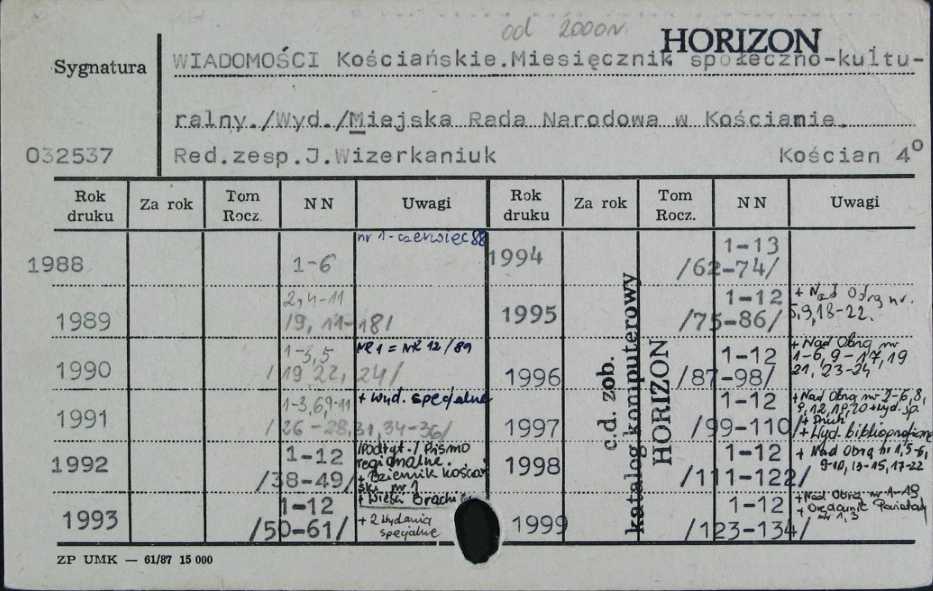 od 2000r.
HORIZON
Sygnatura
WIADOMOŚCI Kościańskie.Miesięcznik społeczno-kultu-
ralny./Wyd./Miejska Rada Narodowa w Kościanie.
032537 Red.zesp.J.Wizerkaniuk Kościan 4°
Rok druku Za rok Tom Rocz. NN Uwagi Rok druku Za rok Tom Rocz. NN Uwagi
1988 1-6 nr 1-czerwiec 88
1989 2,4-11 /9, 11-18/
1990 1-3,5 /19 22, 24/ NR 1 = NR 12/89
1991 1-3,6,9-11 /26-28,31,34-36/ + wyd. specjalne
1992 1-12 /38-49/ /Podtyt./ Pismo regionalne. + Dziennik Kościański nr 1
1993 1-12 /50-61/ + Wieści + 2 wydania specjalne
1994 1-13 /62-74/
1995 1-12 /75-86/ + Nad Obrą nr. 5,9,18-22.
1996 1-12 /87-98/ + Nad Obrą nr 1-6, 9-17,19 21, 23-24
1997 1-12 /99-110/ + Nad Obrą nr 2-6,8, 9,12,19,20 + wyd. sp. + Wyd. bibliofilskie
1998 1-12 /111-122/ + Nad Obrą nr 1,5-6, 9-10, 13-15, 17-22
1999 1-12 /123-134/ + Nad Obrą nr 1-19 + Orędownik Powiatowy nr 1,3
c.d. zob.
katalog komputerowy
HORIZON
ZP UMK — 61/87 15 000